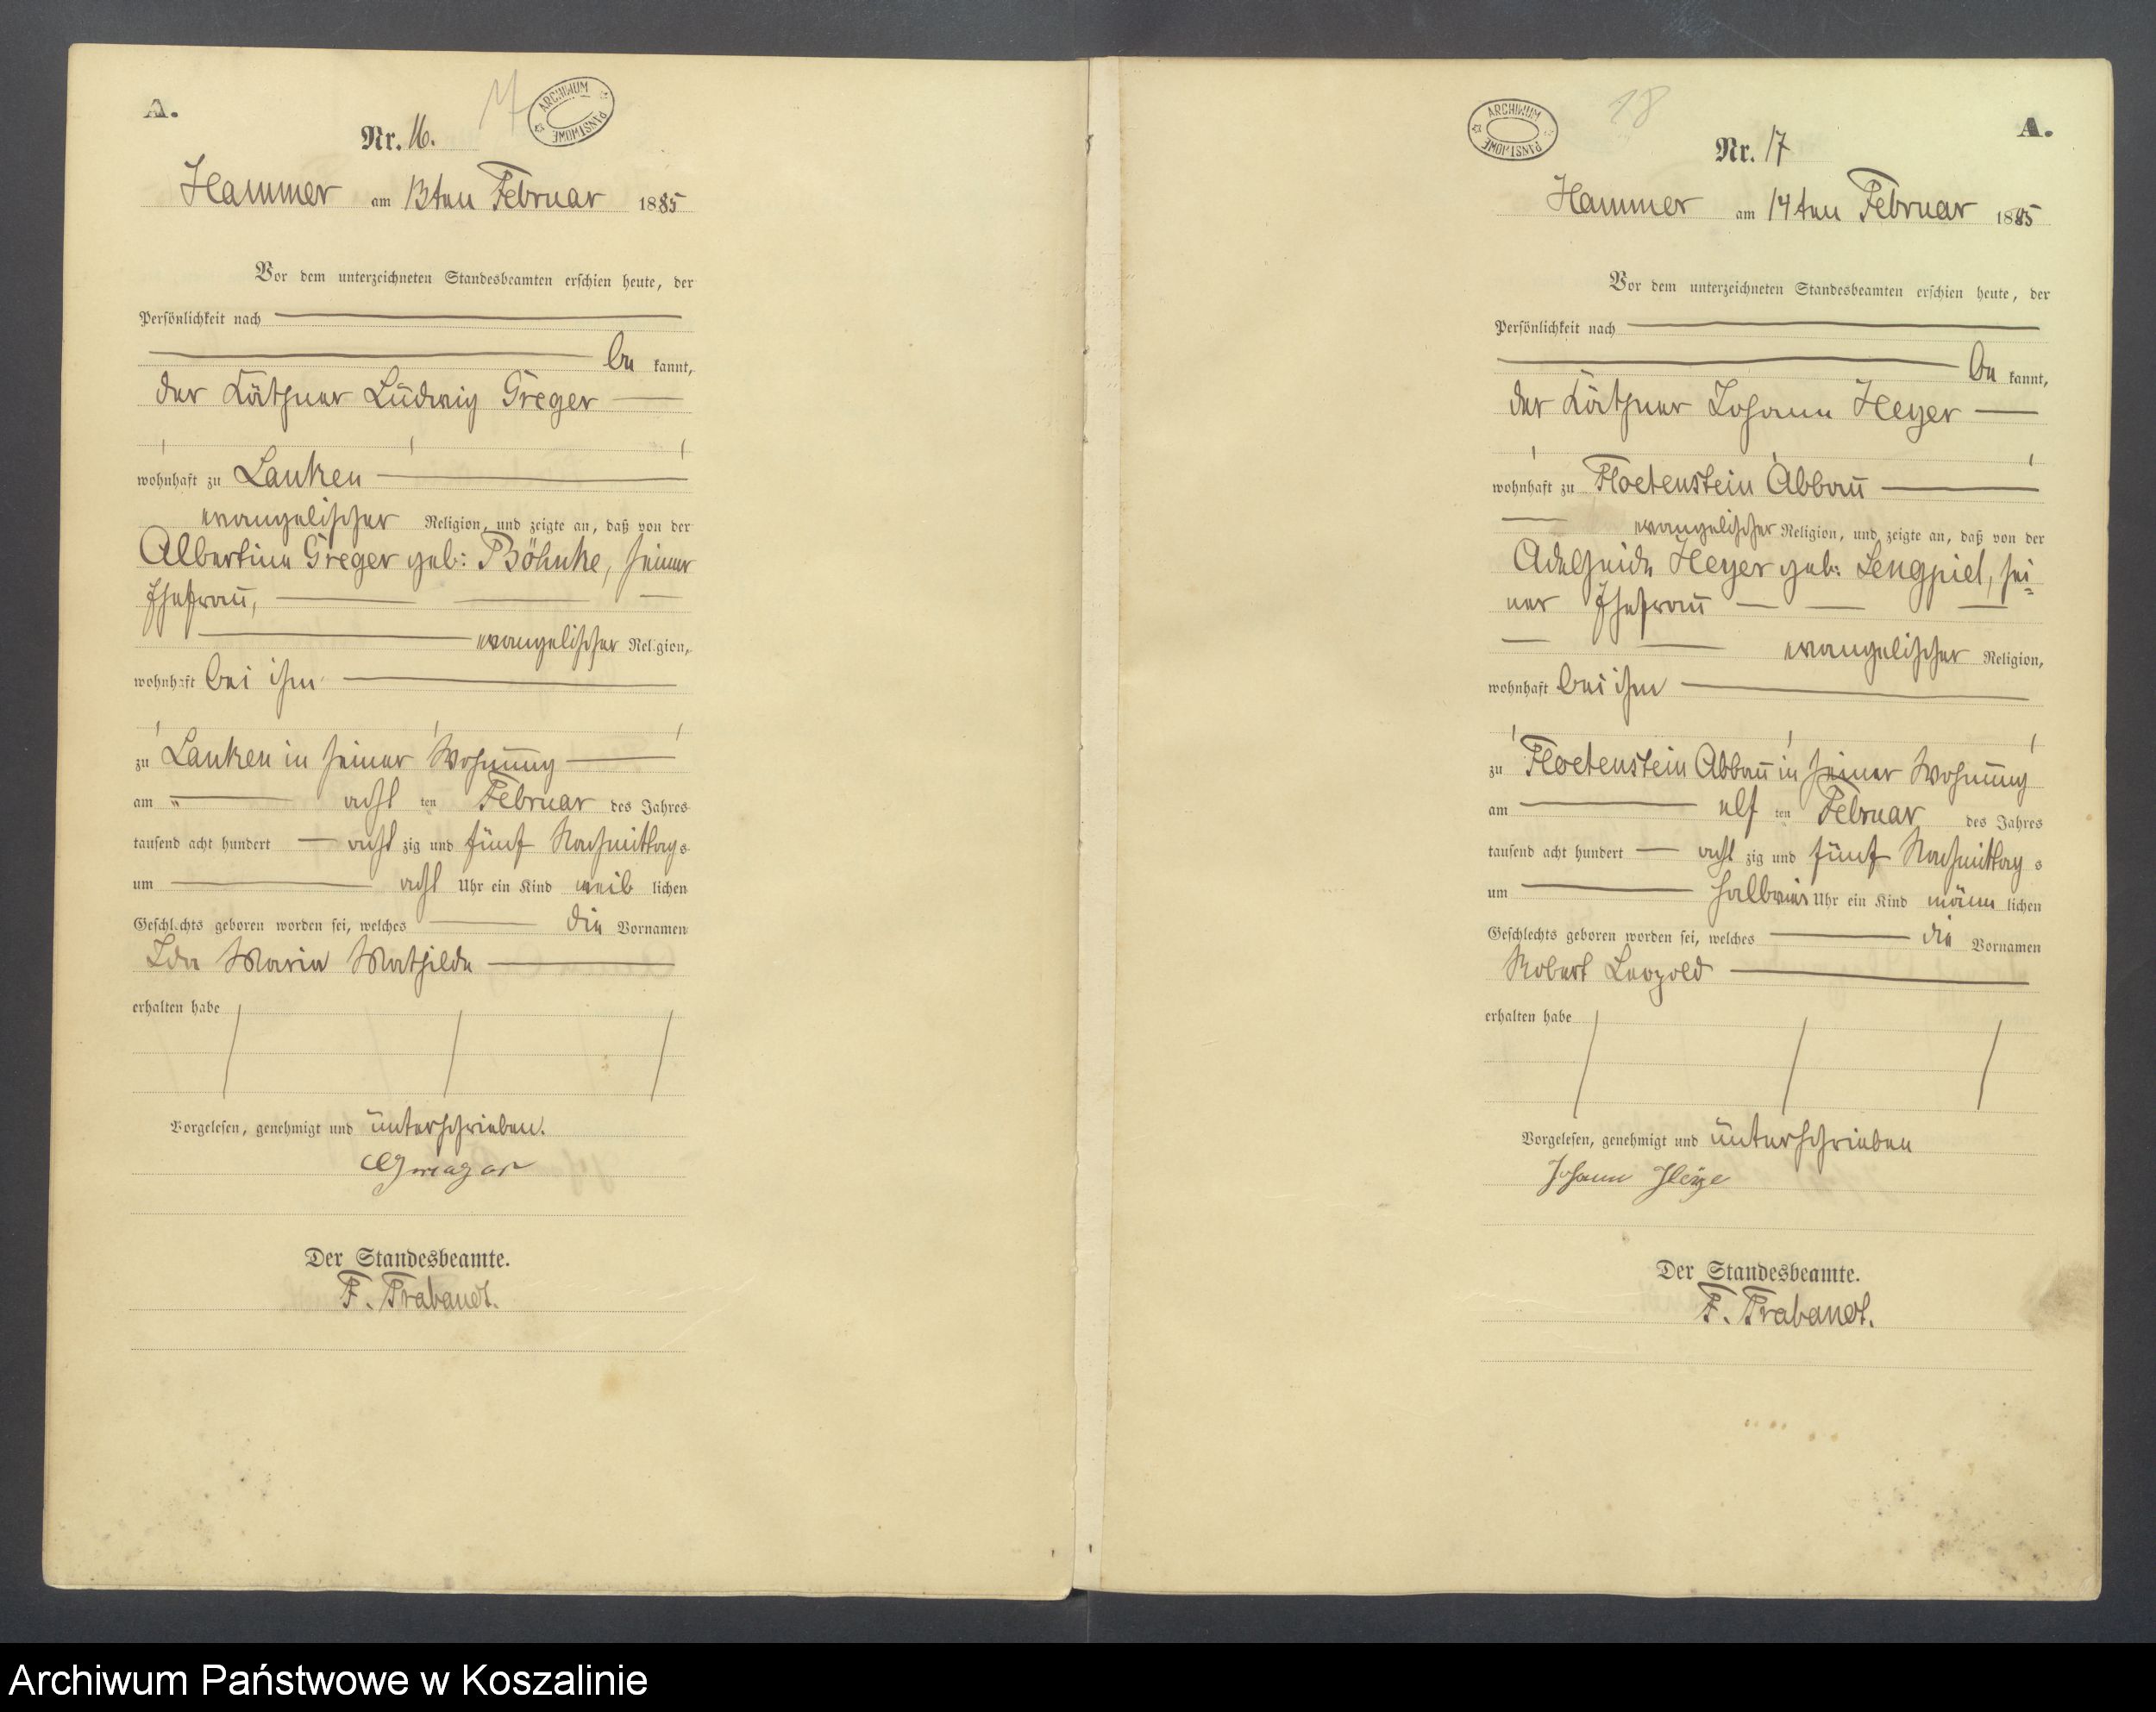 A.
Nr. 16.
17
ARCHIWUM PAŃSTWOWE
Hammer am 13ten Februar 1885
Vor dem unterzeichneten Standesbeamten erschien heute, der
Persönlichkeit nach
be kannt,
der Käthner Ludwig Greger
wohnhaft zu Lanken
evangelischer Religion, und zeigte an, daß von der
Albertine Greger geb: Böhnke, seiner
Ehefrau,
evangelischer Religion,
wohnhaft bei ihm
zu Lanken in seiner Wohnung
am acht ten Februar des Jahres
tausend acht hundert acht zig und fünf Nachmittags
um acht Uhr ein Kind weib lichen
Geschlechts geboren worden sei, welches die Vornamen
Ida Maria Mathilde
erhalten habe
Vorgelesen, genehmigt und unterschrieben.
Der Standesbeamte.
F. Trabandt.
18
ARCHIWUM PAŃSTWOWE
A.
Nr. 17
Hammer am 14ten Februar 1885
Vor dem unterzeichneten Standesbeamten erschien heute, der
Persönlichkeit nach
be kannt,
der Käthner Johann Heyer
wohnhaft zu Floetenstein Abbau
evangelischer Religion, und zeigte an, daß von der
Adelheide Heyer geb: Lengpiel, sei=
ner Ehefrau
evangelischer Religion,
wohnhaft bei ihm
zu Floetenstein Abbau in seiner Wohnung
am elf ten Februar des Jahres
tausend acht hundert acht zig und fünf Nachmittag s
um halbeins Uhr ein Kind männ lichen
Geschlechts geboren worden sei, welches die Vornamen
Robert Leopold
erhalten habe
Vorgelesen, genehmigt und unterschrieben
Johann Heye
Der Standesbeamte.
F. Trabandt.
Archiwum Państwowe w Koszalinie